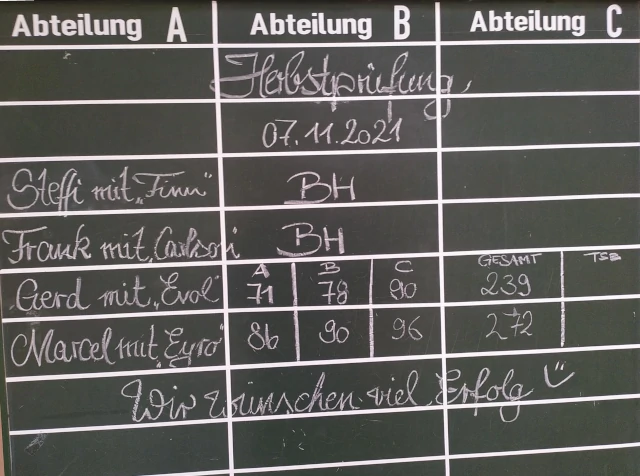 Abteilung A Abteilung B Abteilung C
Herbstprüfung
07.11.2021
Steffi mit „Finn“ BH
Frank mit „Carlson“ BH
A B C GESAMT TSB
Gerd mit „Evol“ 71 78 90 239
Marcel mit „Eyro“ 86 90 96 272
Wir wünschen viel Erfolg